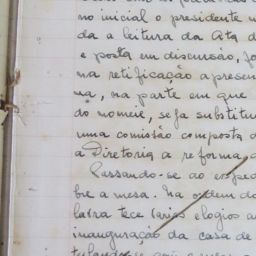 no inicial o presidente
da a leitura da Ata d
e posta em discussão, fo
ma retificação apresen
na, na parte em que
do nomeie, seja substitu
uma comissão composta d
a Diretoria a reforma,
Passando-se ao exped
bre a mesa. Na ordem do
lavra tece varios elogios a
inauguração da casa de